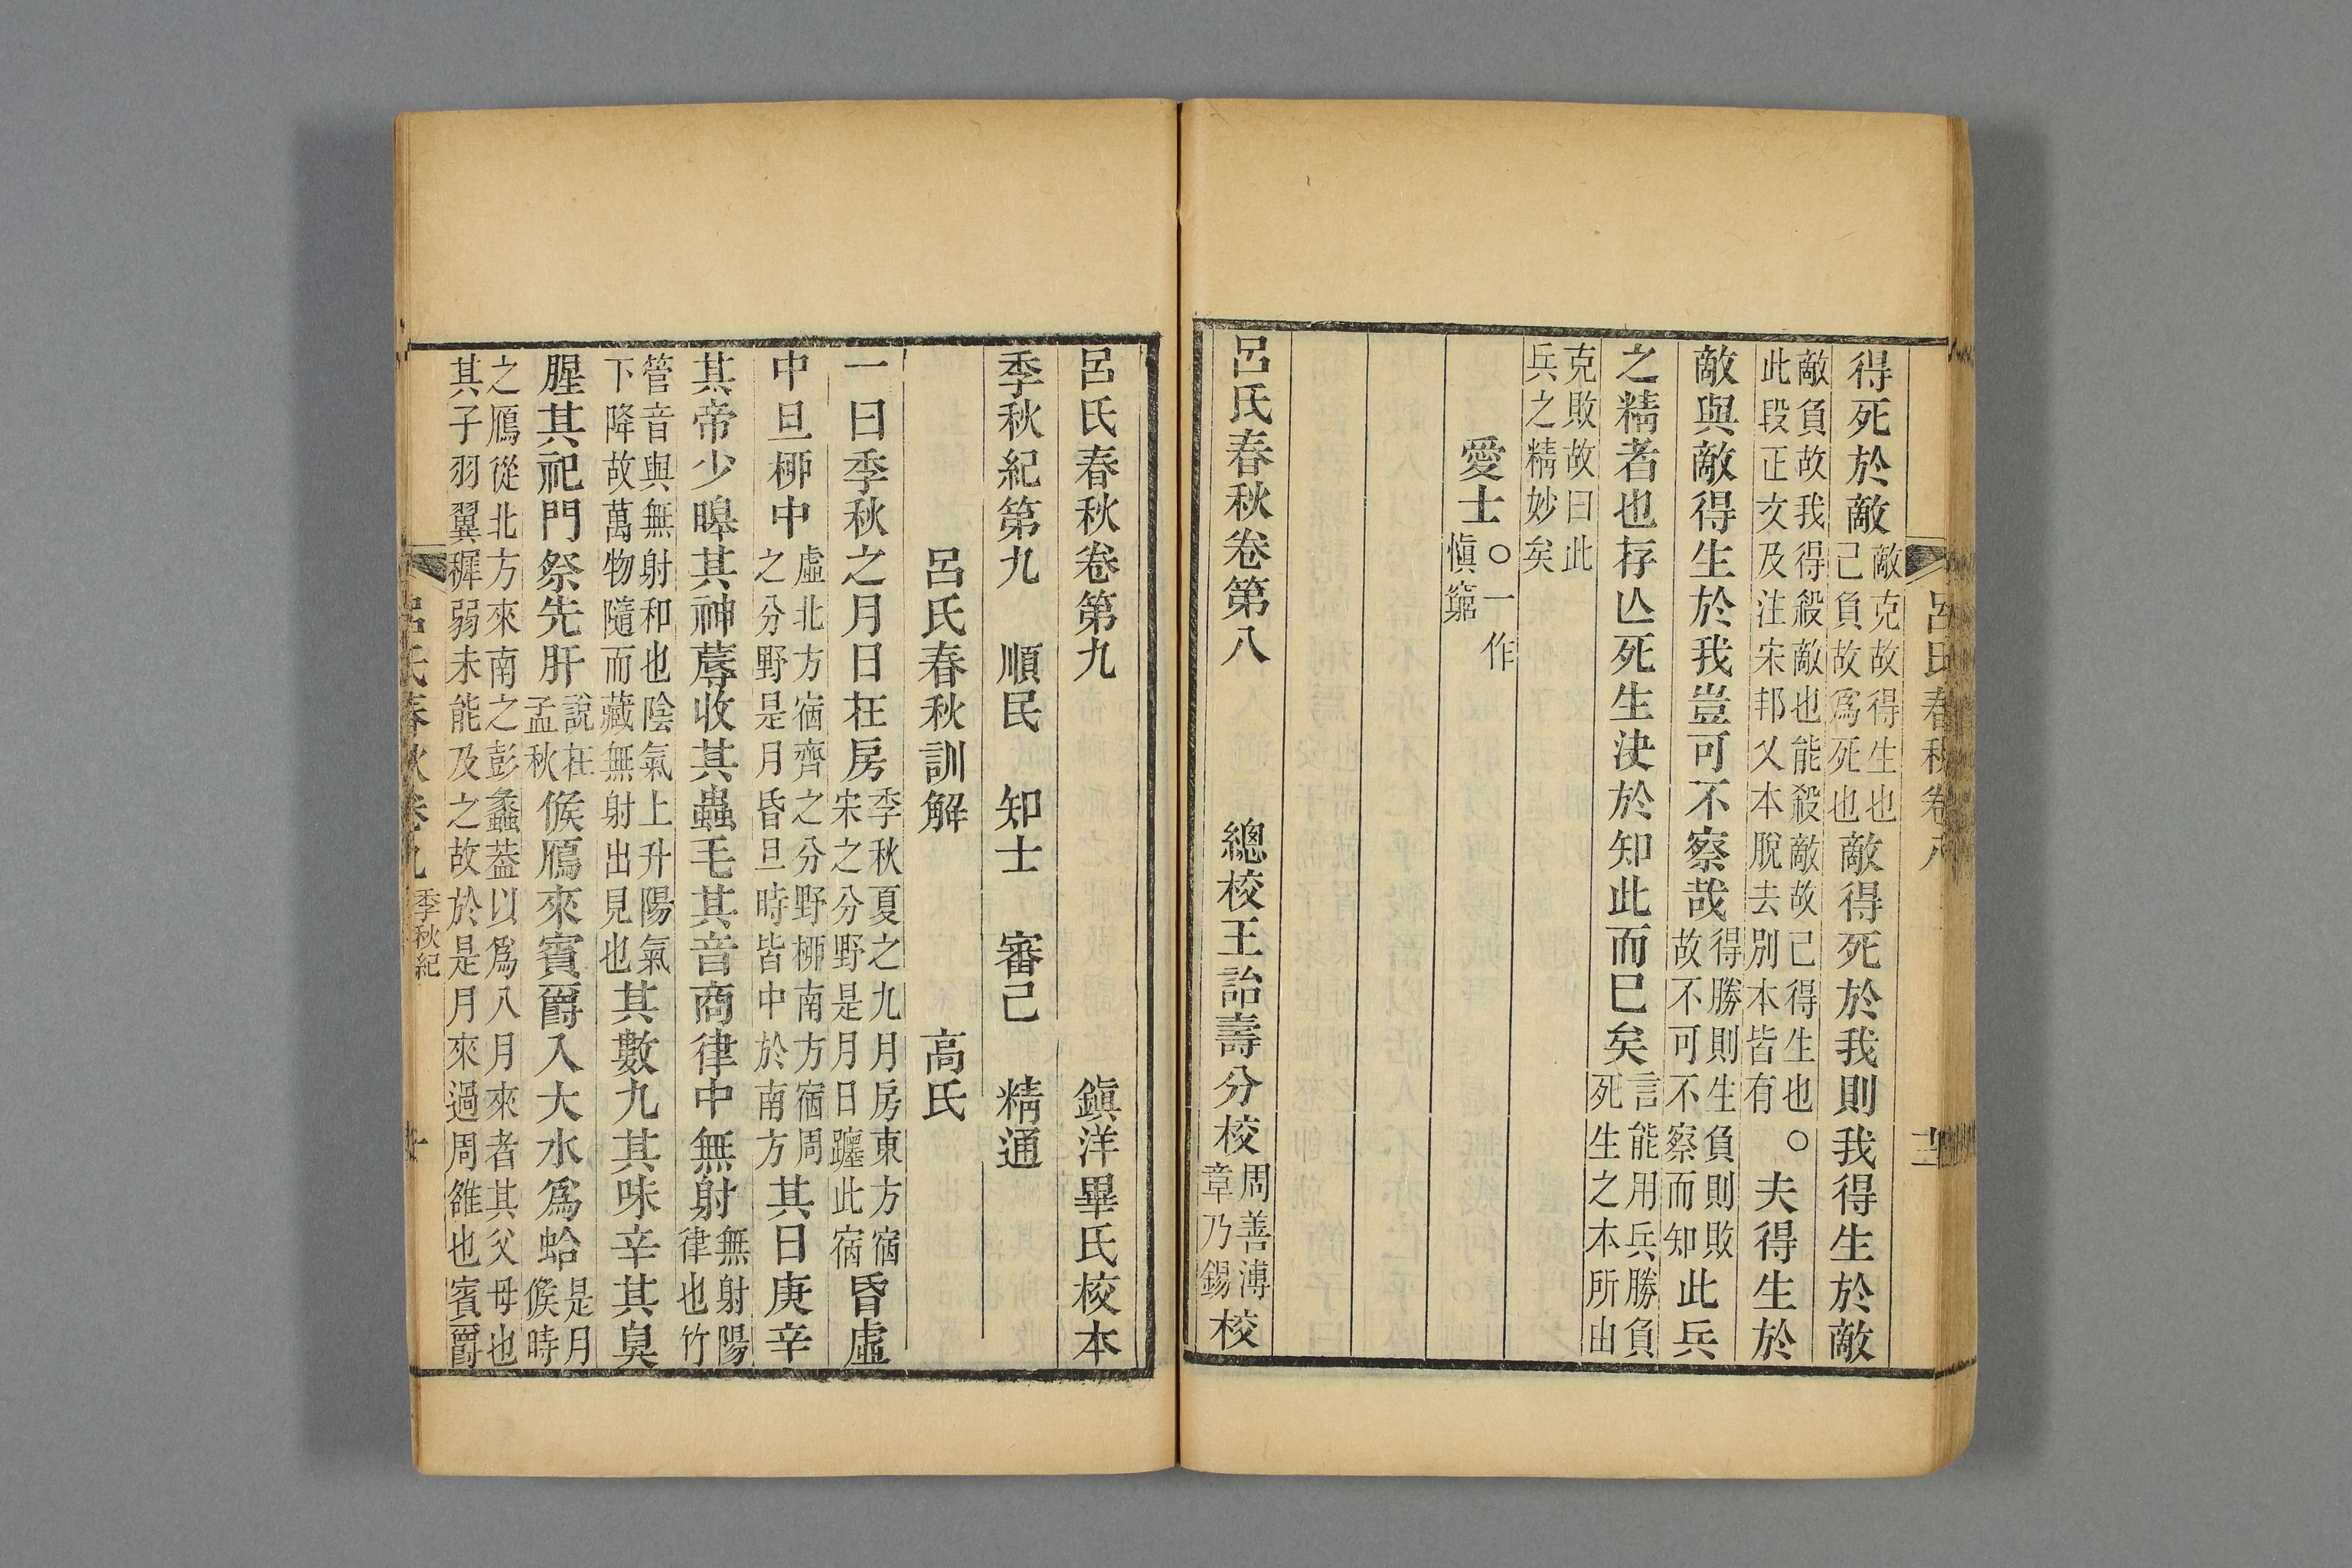 呂氏春秋卷八
得死於敵敵克故得生也己負故爲死也敵得死於我則我得生於敵
敵負故我得殺敵也能殺敵故己得生也○此段正文及注宋邦乂本脫去別本皆有夫得生於
敵與敵得生於我豈可不察哉得勝則生負則敗故不可不察而知此兵
之精者也存亾死生決於知此而已矣言能用兵勝負死生之本所由
克敗故曰此兵之精妙矣
愛士○一作愼窮
呂氏春秋卷第八 總校王詒壽分校周善溥章乃錫校
呂氏春秋卷第九 鎭洋畢氏校本
季秋紀第九 順民 知士 審己 精通
呂氏春秋訓解 高氏
一曰季秋之月日在房季秋夏之九月房東方宿宋之分野是月日躔此宿昏虛
中旦桺中虛北方宿齊之分野桺南方宿周之分野是月昏旦時皆中於南方其日庚辛
其帝少皞其神蓐收其蟲毛其音商律中無射無射陽律也竹
管音與無射和也陰氣上升陽氣下降故萬物隨而藏無射出見也其數九其味辛其臭
腥其祀門祭先肝說在孟秋候鴈來賓爵入大水爲蛤是月候時
之鴈從北方來南之彭蠡葢以爲八月來者其父母也其子羽翼穉弱未能及之故於是月來過周雒也賓爵
呂氏春秋卷九 季秋紀 一